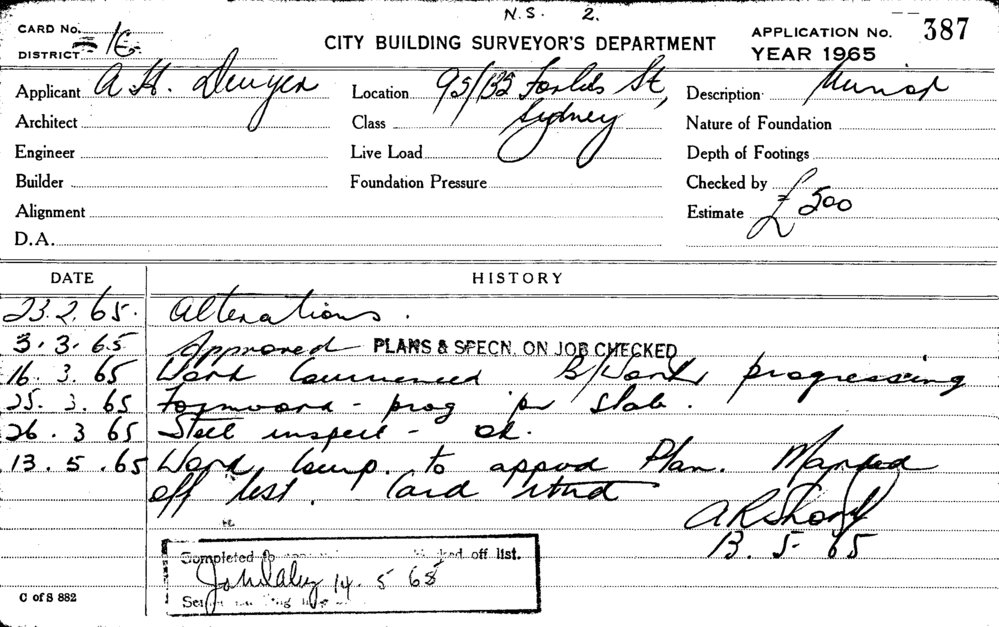 N.S. 2.
CARD No.
DISTRICT 1E.
CITY BUILDING SURVEYOR'S DEPARTMENT
APPLICATION No. 387
YEAR 1965
Applicant A H. Dwyer
Location 95/135 Forbes St,
Sydney
Description Minor
Architect
Class
Nature of Foundation
Engineer
Live Load
Depth of Footings
Builder
Foundation Pressure
Checked by
Alignment
Estimate £ 500
D.A.
DATE HISTORY
23.2.65. Alterations.
3.3.65 Approved PLANS & SPECN. ON JOB CHECKED
16.3.65 Work Commenced B/Work progressing
25.3.65 Formwork - prog for slab.
26.3 65 Steel inspect - ok.
13.5.65 Work Comp. to appvd Plan. Marked
off list. Card rtnd
13.5.65
Completed to off list.
14.5 65
C of S 882